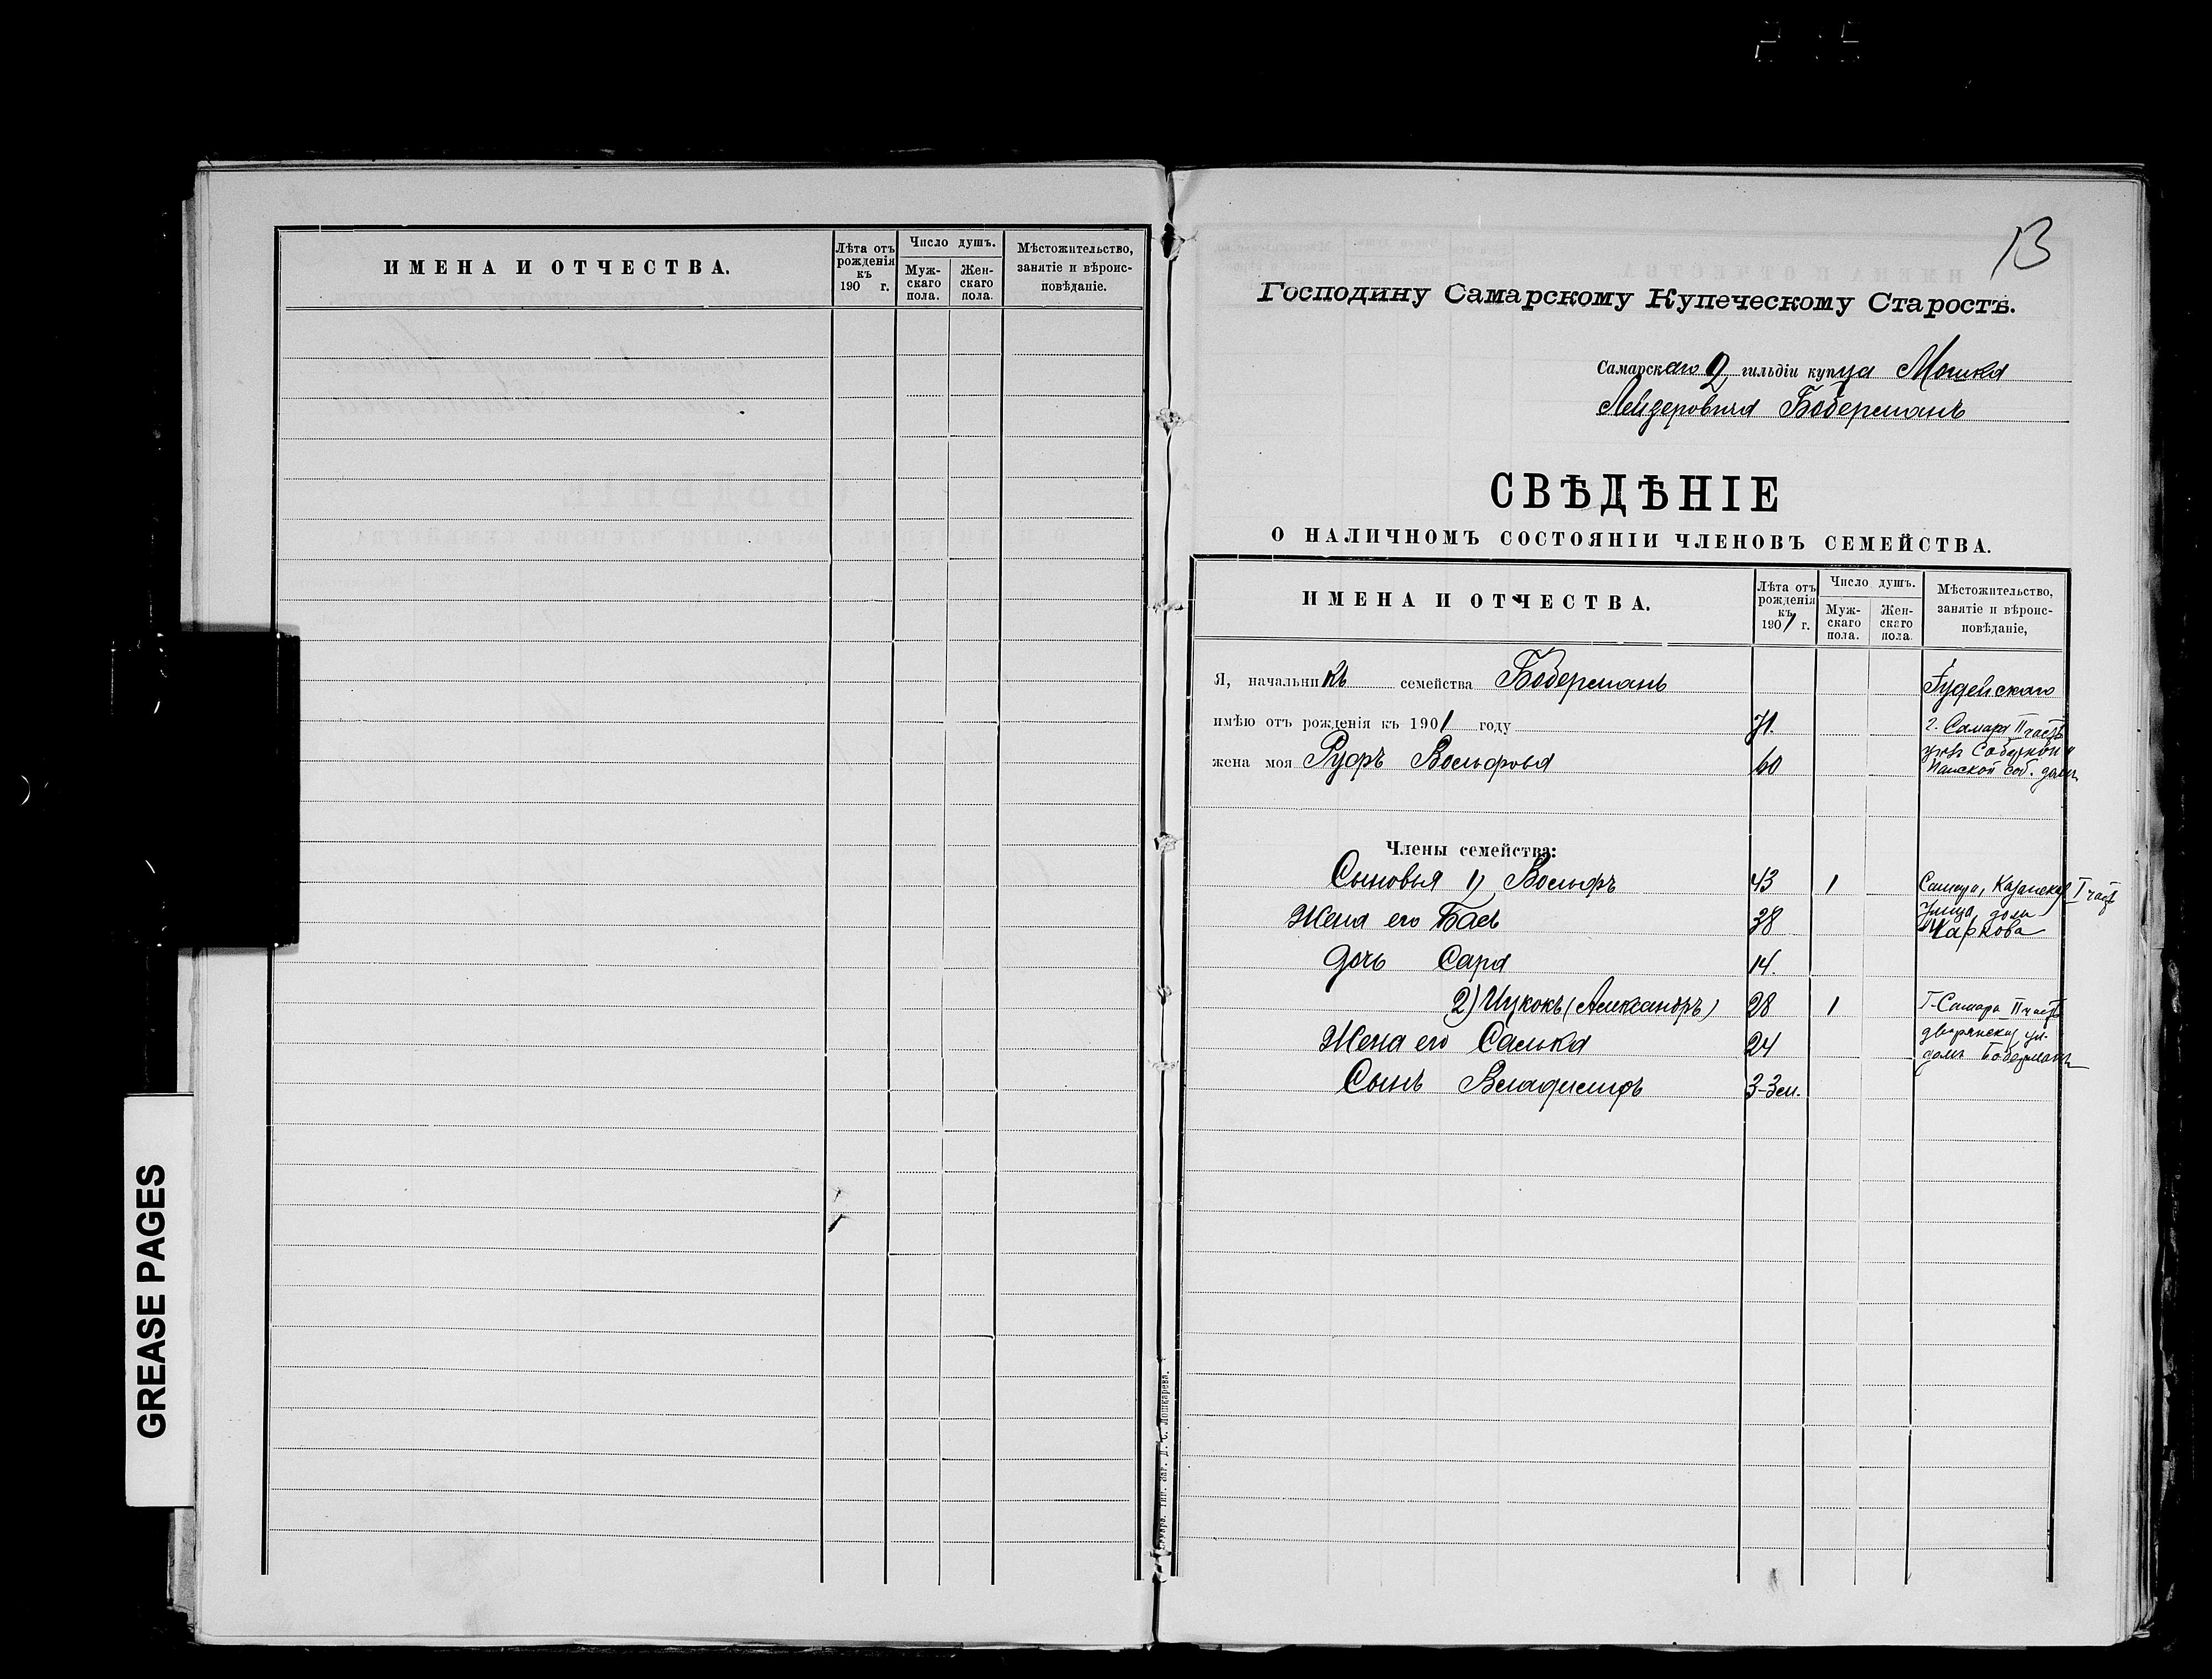 ИМЕНА И ОТЧЕСТВА.
Лѣта отъ рожденія къ 190 г.
Число душъ.
Мужскаго пола.
Женскаго пола.
Мѣстожительство, занятіе и вѣроисповѣданіе.
GREASE PAGES
13
Господину Самарскому Купеческому Старостѣ.
Самарскаго 2 гильдіи купца Мошка
Лейзеровича Боберманъ
СВѢДѢНІЕ
О НАЛИЧНОМЪ СОСТОЯНІИ ЧЛЕНОВЪ СЕМЕЙСТВА.
ИМЕНА И ОТЧЕСТВА.
Лѣта отъ рожденія къ 1901 г.
Число душъ.
Мужскаго пола.
Женскаго пола.
Мѣстожительство, занятіе и вѣроисповѣданіе,
Я, начальникъ семейства Боберманъ Іудейскаго
имѣю отъ рожденія къ 1901 году 71. г. Самара II часть
уголъ Соборной и
жена моя Руфь Вольфовна 60 Панской соб. домъ
Члены семейства:
Сыновья 1) Вольфъ 43 1 Самара, Казанская I часть
Жена его Бася 38 улица домъ
Маркова
дочь Сара 14.
2) Ицкокъ (Александръ) 28 1 Г. Самара II часть
Жена его Салька 24 дворянская ул.
домъ Боберманъ
Сынъ Владиміръ 3-3 м.
Самара. Тип. Заг. Д. С. Лошкарева.